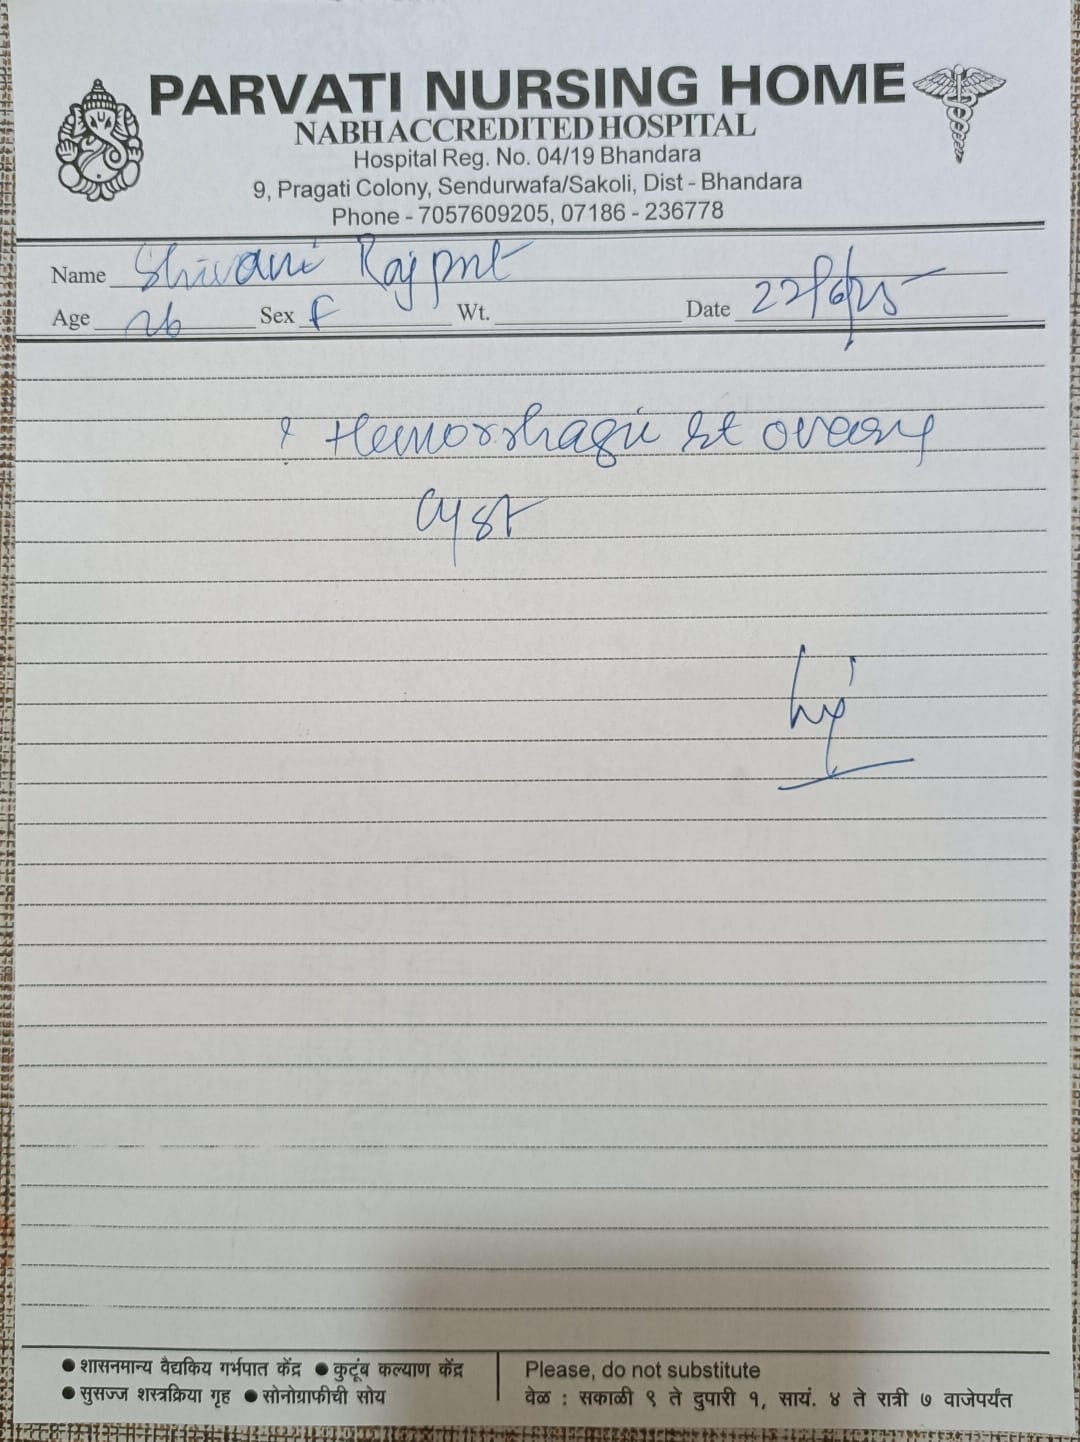 PARVATI NURSING HOME
NABH ACCREDITED HOSPITAL
Hospital Reg. No. 04/19 Bhandara
9, Pragati Colony, Sendurwafa/Sakoli, Dist - Bhandara
Phone - 7057609205, 07186 - 236778
Name Shivani Rajput
Age 26 Sex F Wt. Date 22/6/25
? Hemorrhagic Rt ovary
cyst
● शासनमान्य वैद्यकिय गर्भपात केंद्र ● कुटूंब कल्याण केंद्र
● सुसज्ज शस्त्रक्रिया गृह ● सोनोग्राफीची सोय
Please, do not substitute
वेळ : सकाळी ९ ते दुपारी १, सायं. ४ ते रात्री ७ वाजेपर्यंत